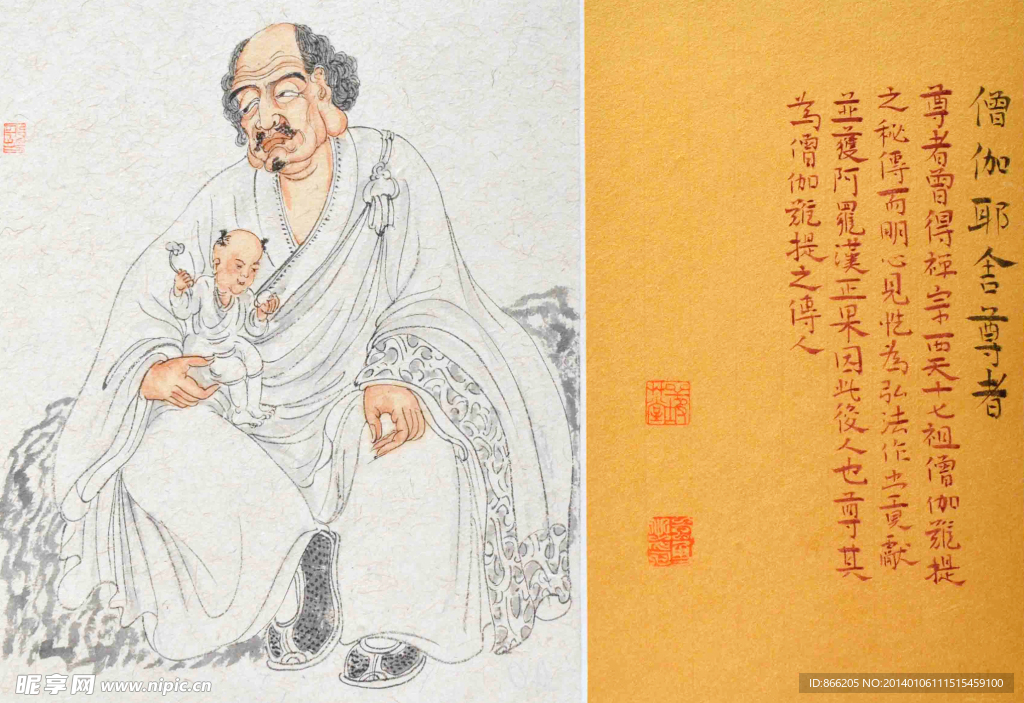 僧伽耶舍尊者
尊者曾得禅宗西天十七祖僧伽难提
之秘傳而明心見性為弘法作出貢獻
並獲阿羅漢正果因此後人也尊其
為僧伽难提之傳人
昵享网 www.nipic.cn
ID:866205 NO:20140106111515459100